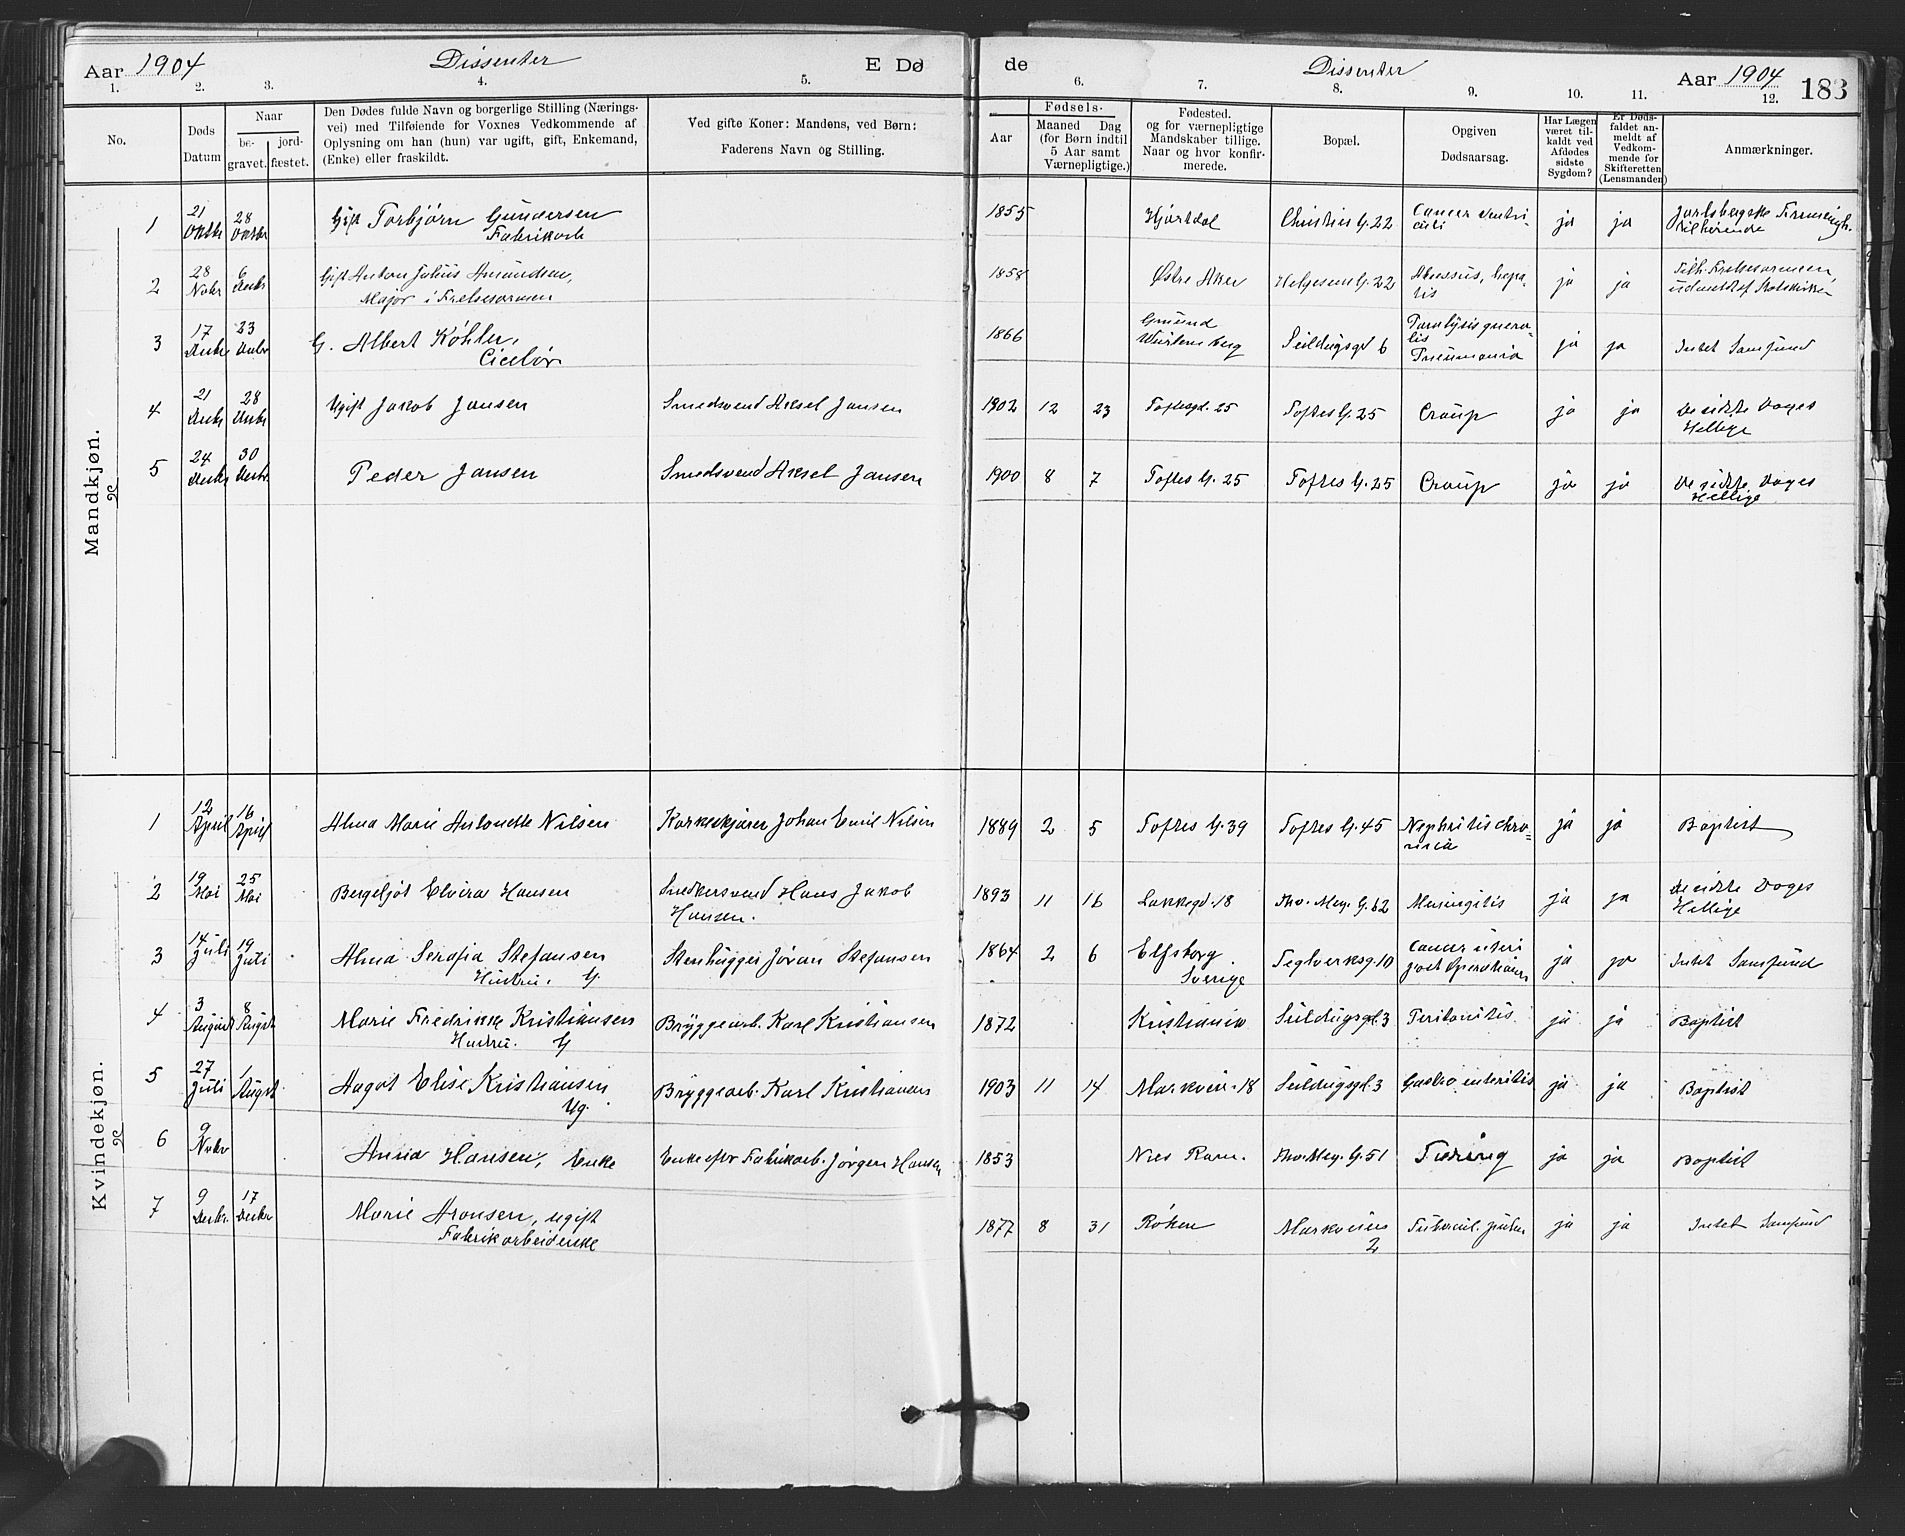 Aar 1904 Dissenter E Dø
1. 2. 3. 4. 5.
No.
Døds Datum
Naar
be-gravet.
jord-fæstet.
Den Dødes fulde Navn og borgerlige Stilling (Nærings-
vei) med Tilføiende for Voxnes Vedkommende af
Oplysning om han (hun) var ugift, gift, Enkemand,
(Enke) eller fraskilt.
Ved gifte Koner: Mandens, ved Børn:
Faderens Navn og Stilling.
de Dissenter Aar 1904 183
6. 7. 8. 9. 10. 11. 12.
Fødsels-
Aar
Maaned Dag
(for Børn indtil
5 Aar samt
Værnepligtige.)
Fødested.
og for værnepligtige
Mandskaber tillige.
Naar og hvor konfir-
merede.
Bopæl.
Opgiven
Dødsaarsag.
Har Lægen
været til-
kaldt ved
Afdødes
sidste
Sygdom?
Er Døds-
faldet an-
meldt af
Vedkom-
mende for
Skifteretten
(Lensmanden)
Anmærkninger.
Mandkjøn.
1 21 Oktbr 28 Oktbr Gift Torbjørn Gundersen 1855 Hjartdal Christies G. 22 Cancer ventri- ja ja Jarlsbergske Frimenigh.
Fabrikarb culi tilhørende
2 28 Novbr 6 Decbr Gift Anton Julius Amundsen, 1858 Østre Aker Helgesens G. 22 Abscessus, hepa- ja ja Tilh. Frelsesarmeen,
Major i Frelsesarmeen tis udmeldt af Statskirken
3 17 Decbr 23 Decbr G. Albert Köhler, 1866 Gmünd Seildugsgd 6 Paralysis genera- ja ja Intet Samfund
Ciselør Würtemberg lis
Pneumonia
4 21 Decbr 28 Decbr Ugift Jakob Jansen Smedsvend Aksel Jansen 1902 12 23 Toftesgd. 25 Toftes G. 25 Croup ja ja De sidste Dages
Hellige
5 24 Decbr 30 Decbr Peder Jansen Smedsvend Aksel Jansen 1900 8 7 Toftes G. 25 Toftes G. 25 Croup ja ja De sidste Dages
Hellige
Kvindekjøn.
1 12 April 16 April Alma Marie Antonette Nilsen Korkeskjærer Johan Emil Nilsen 1889 2 5 Toftes G. 39 Toftes G. 45 Nephritis chro- ja ja Baptist
nica
2 19 Mai 25 Mai Bergeljot Elvira Hansen Snedkersvend Hans Jakob 1893 11 16 Lakkegd. 18 Thv. Mey. G. 62 Meningitis ja ja De sidste Dages
Hansen. Hellige
3 14 Juli 19 Juli Alma Serafia Stefansen Stenhugger Jøran Stefansen 1864 2 6 Elfsborg Teglverksg. 10 Cancer uteri ja ja Intet Samfund
Hustru. G Sverige post operationem
4 3 August 8 Augst Marie Fredrikke Kristiansen Bryggearb. Karl Kristiansen 1872 Kristiania Seildugsgd. 3 Peritonitis. ja ja Baptist
Hustru. G
5 27 Juli 1 Augst Aagot Elise Kristiansen Bryggearb. Karl Kristiansen 1903 11 14 Markvein 18 Seildugsgd. 3 Gastro enteritis ja ja Baptist
Ug.
6 9 Novbr Anna Hansen, Enke Enke efter Fabrikarb. Jørgen Hansen 1853 Nes Rom. Thv. Mey. G. 51 Tæring ja ja Baptist
7 9 Decbr. 17 Decbr Marie Aronsen, ugift 1877 8 31 Røken Markveien Tubercul. pulm ja ja Intet Samfund
Fabrikarbeiderske 2